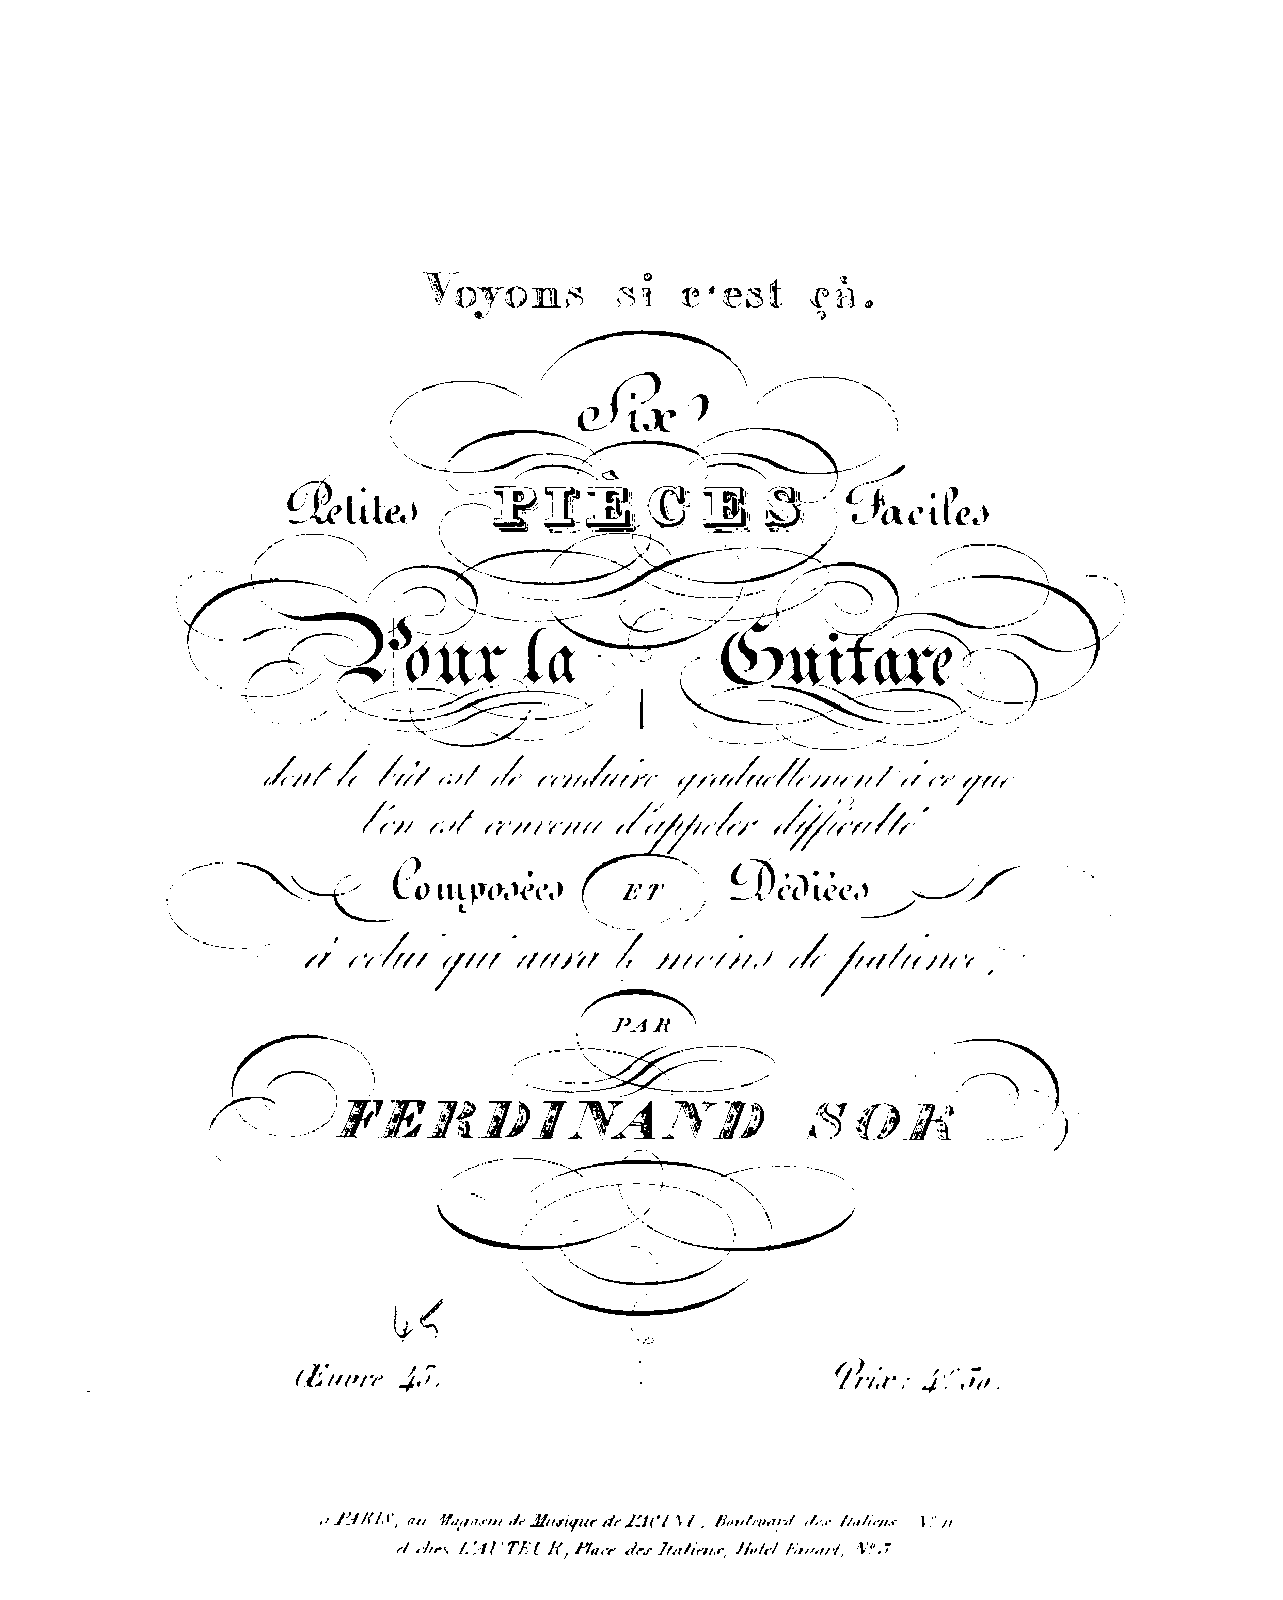 Voyons si c'est çà.
Six
Petites PIÈCES Faciles
Pour la Guitare
dont le bût est de conduire graduellement à ce que
l'on est convenu d'appeler difficulté
Composées ET Dédiées
à celui qui aura le moins de patience,
PAR
FERDINAND SOR
45
Œuvre 45.
Prix: 4f 50.
à PARIS, au Magasin de Musique de PACINI, Boulevard des Italiens N° 11
et chez L'AUTEUR, Place des Italiens, Hotel Favart, N° 5